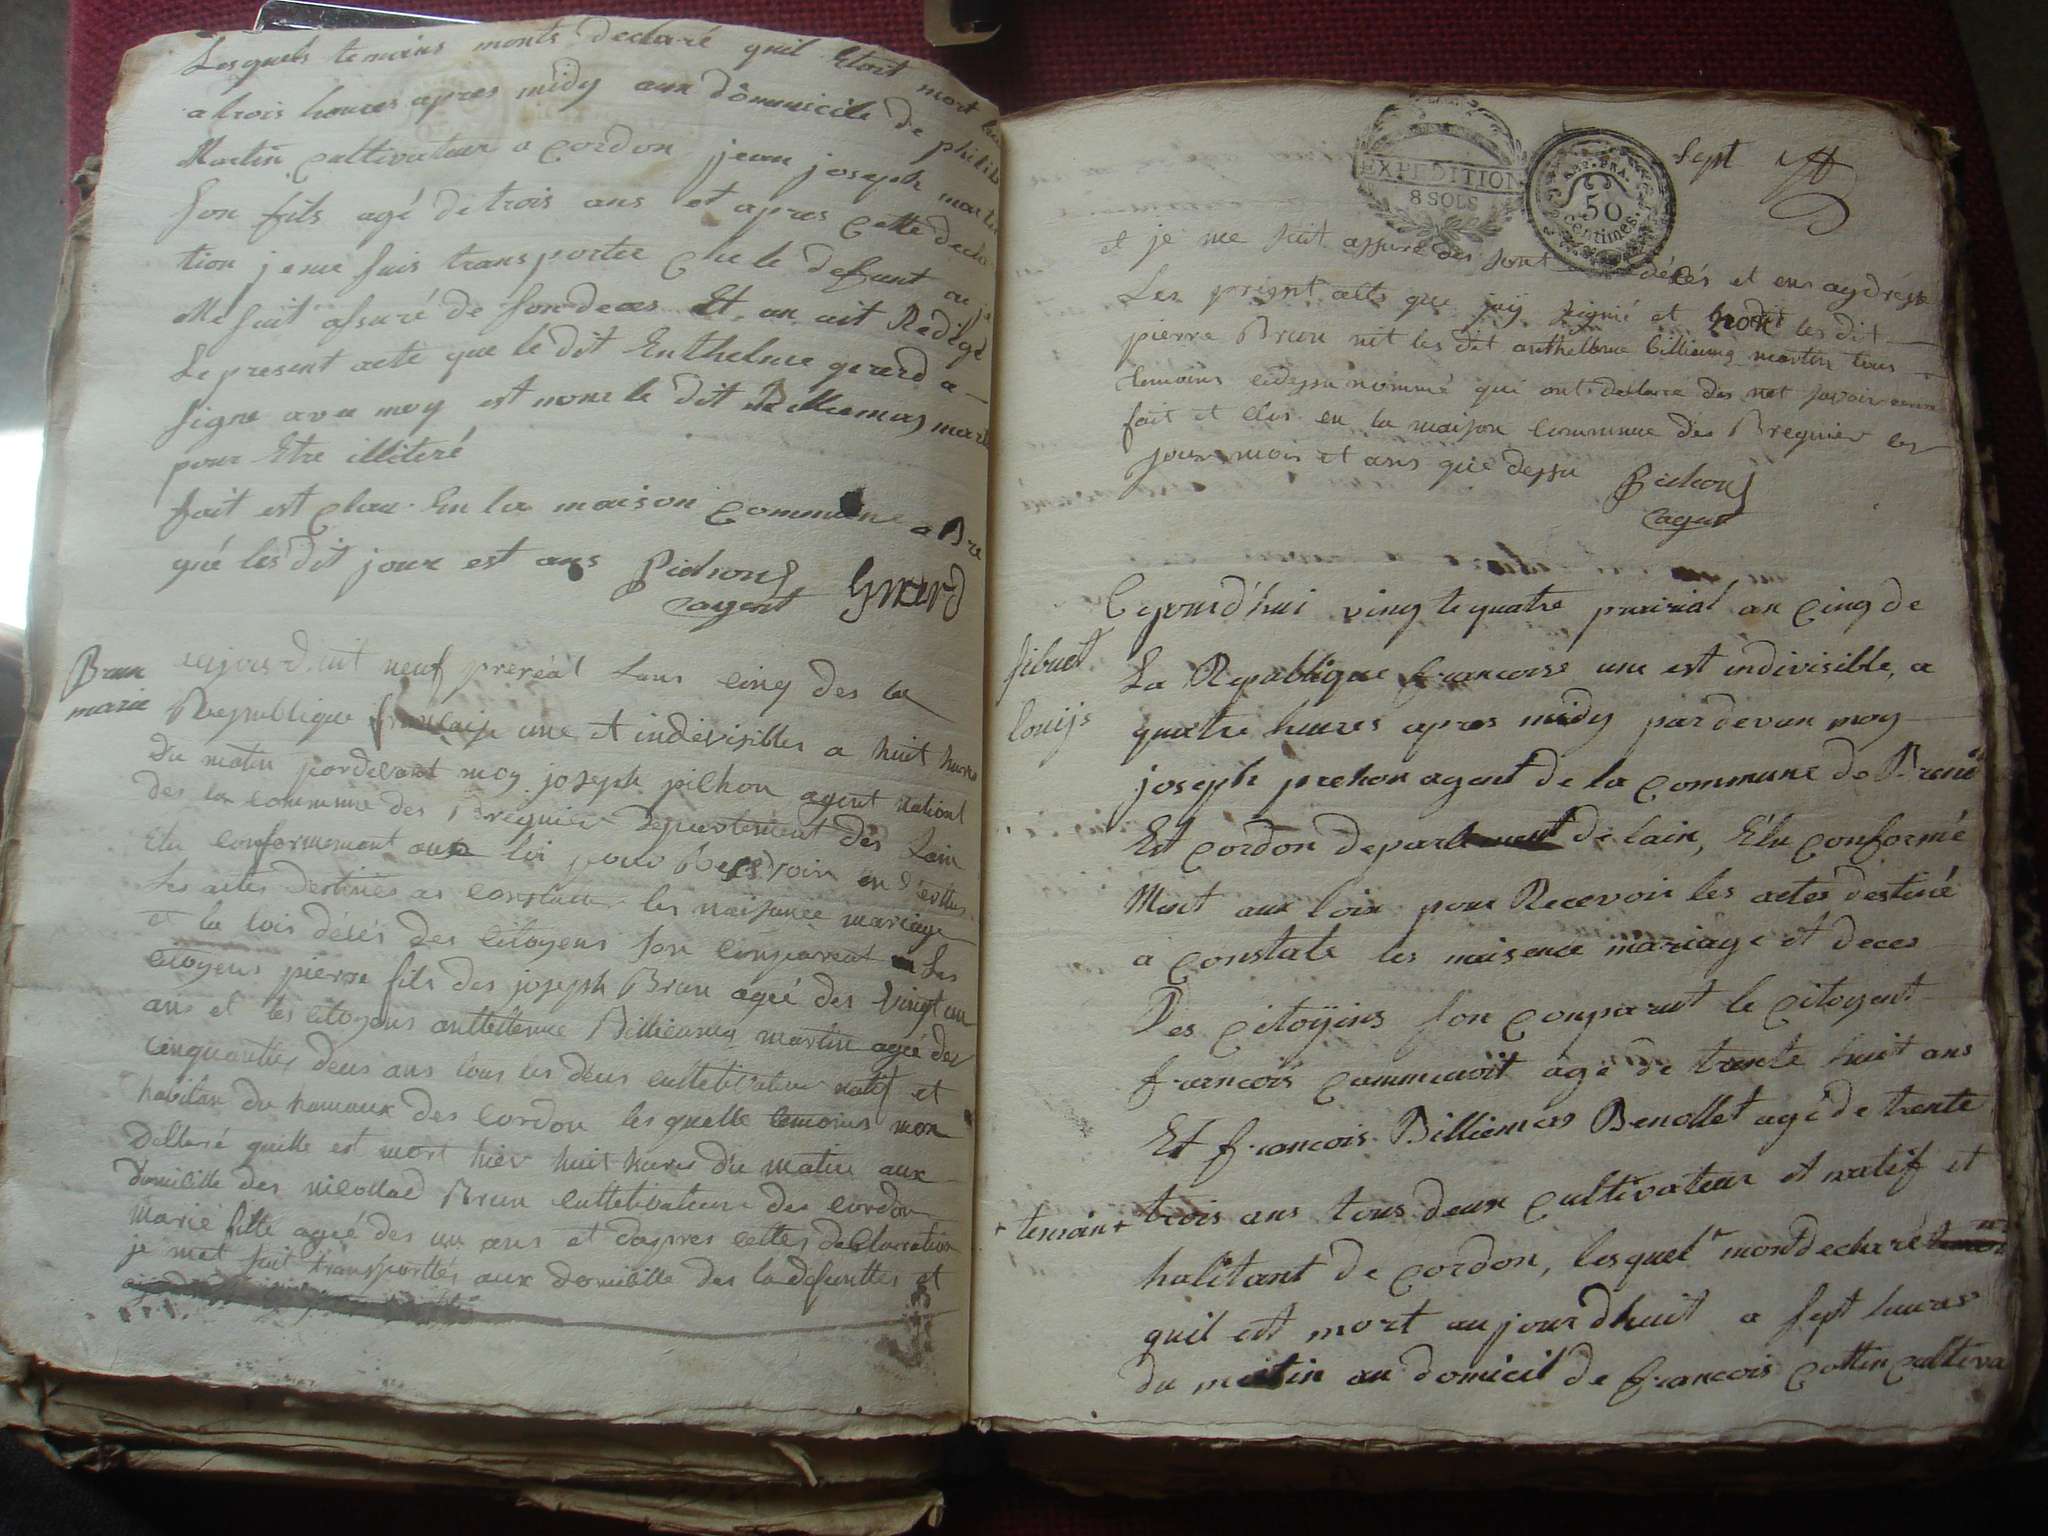 Lesquels temoins monts declaré quil Etoit mort hie
a trois heures apres midy aux dômmicile de philib
Martin cultivateur a Cordon jean joseph martin
son fils agé de trois ans et apres cette decla
tion je me suis transporter che le defunt ou je
Me suit assuré de son deces Et an ait Redigé
Le present acte que le dit Enthelme gerard a
signe avec moy est none le dit Billiemas mart
pour Etre illiteré
fait est clau En la maison commune a Bre
gnié les dit jour est ans Pichon Girard
agent
Brun
marie
aujourdhuit neuf preréal lans cinq des la
Republique francaise une et indevisibles a huit heures
du matin pardevant moy joseph pichon agent national
des la commune des Bregnier Departement des Lain
Elu conformement aux loi pour
les actes destinés as constater les naissance mariage
et la lois désés des citoyens son comparent Les
citoyens pierre fils des joseph Brun ageé des vingt un
ans et les citoyens anthellemme Billiemas martin ageé des
cinquantes deus ans tous les deus cultetivateur natif et
habitan du hamaux des Cordon les quelle temoins mon
Dellaré quelle est mort hier huit hures du matin aux
domicille des nicollad Brun cultetivateur des cordon
marie fille ageé des un ans et dapres cettes declarration
je met suit transporttés aux domicille des la defunttes et
Sept
EXPEDITION
8 SOLS
50
Centimes.
et je me suit assuré des sont décés et ens aydrésse
Les present alts que jay signié et nont les dit
pierre Brun nit les dit anthellme billiemas martin tous
temoins cidessu nommé qui ont declaré des net savoir
fait et clos en la maison commune dés Bregnier les
jour mois et ans que dessu Pichon
agent
Cejourd'hui vingt quatre prairial an cinq de
sibuet
La Republique francoise une est indivisible, a
louijs
quatre heures apres midy pardevan moy
joseph prehon agent de la commune de Brenié
Est cordon departement de lain, Elu conformé
Ment aux loix pour Recevoir les actes destiné
a constate les naisence mariage et deces
Des citoÿens son conparut le citoyent
francois agé de trente huit ans
Et francois Billiemas Benollet agé de trente
trois ans tous deux cultivateur et natif et
+ temoin +
habitant de cordon, lesquel + mont declaré
quil est mort aujourdhuit a sept heuras
du matin au domicil de francois cottin cultiva